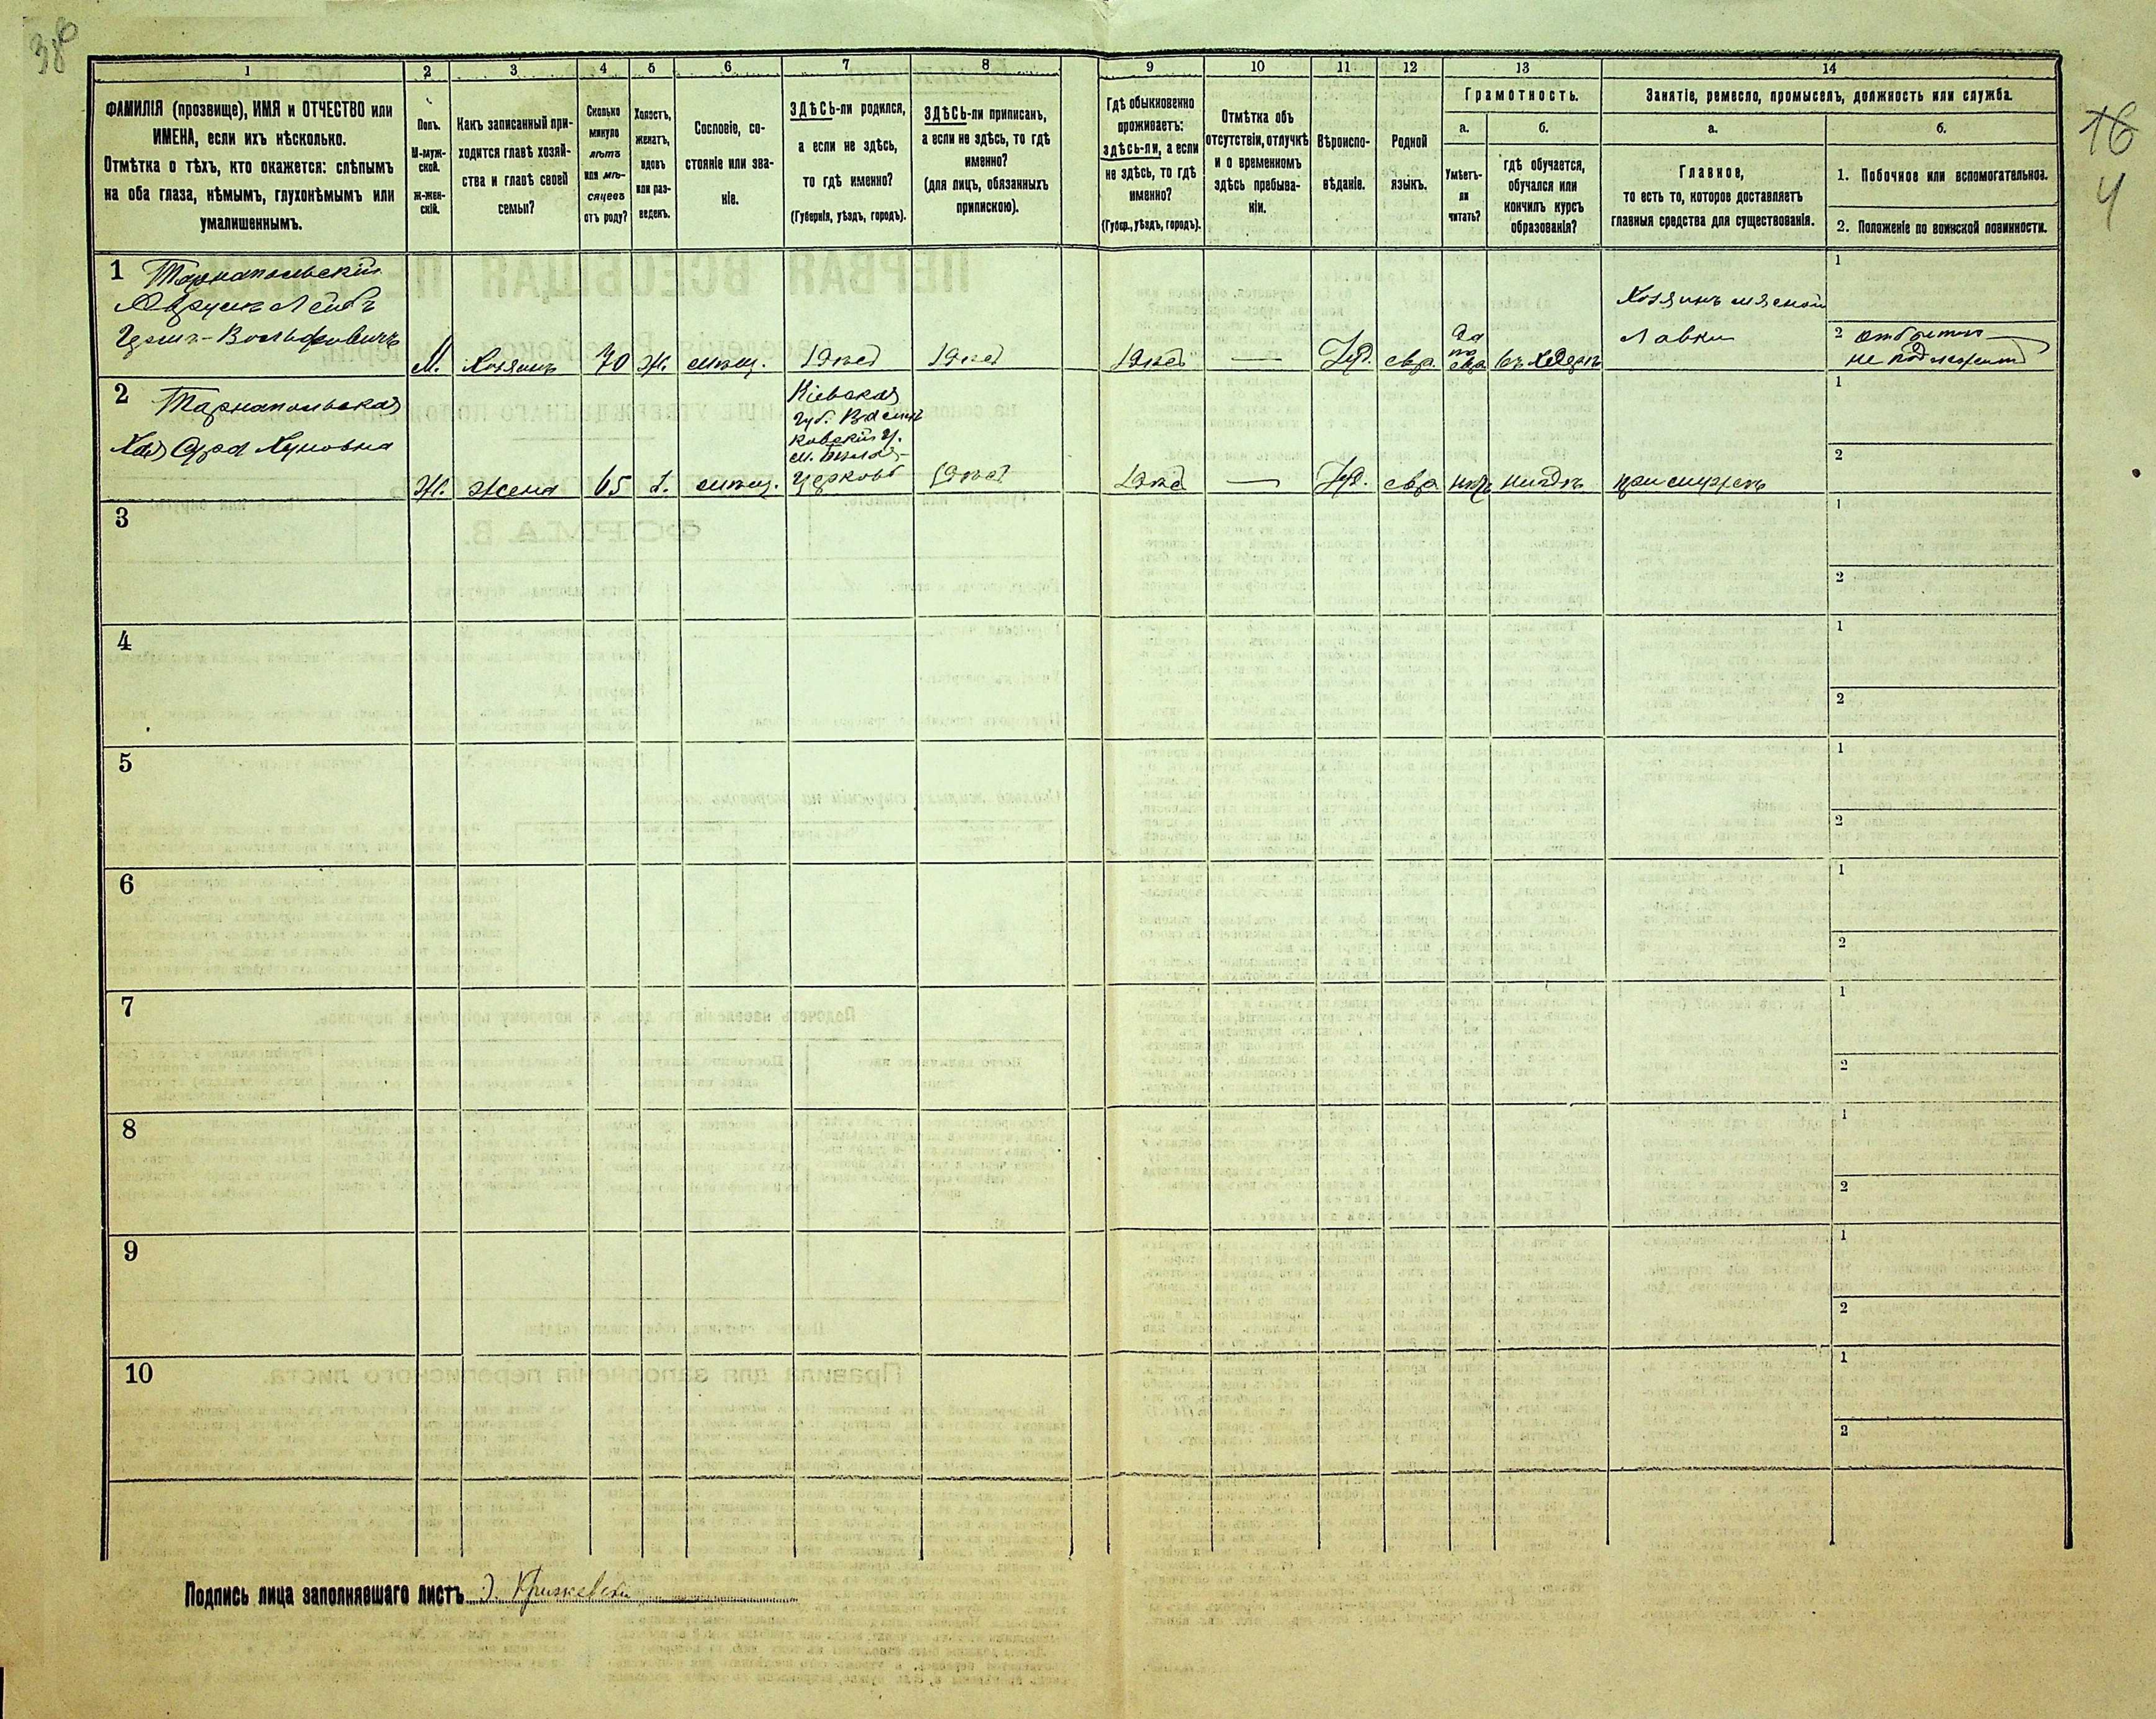 38
1 2 3 4 5 6 7 8 9 10 11 12 13 14
ФАМИЛІЯ (прозвище), ИМЯ и ОТЧЕСТВО или
ИМЕНА, если ихъ нѣсколько.
Отмѣтка о тѣхъ, кто окажется: слѣпымъ
на оба глаза, нѣмымъ, глухонѣмымъ или
умалишеннымъ.
Полъ.
М-муж-
ской.
Ж-жен-
скій.
Какъ записанный при-
ходится главѣ хозяй-
ства и главѣ своей
семьи?
Сколько
минуло
лѣтъ
или мѣ-
сяцевъ
отъ роду?
Холостъ,
женатъ,
вдовъ
или раз-
веденъ.
Сословіе, со-
стояніе или зва-
ніе.
ЗДѢСЬ-ли родился,
а если не здѣсь,
то гдѣ именно?
(Губернія, уѣздъ, городъ).
ЗДѢСЬ-ли приписанъ,
а если не здѣсь, то гдѣ
именно?
(для лицъ, обязанныхъ
припискою).
Гдѣ обыкновенно
проживаетъ:
здѣсь-ли, а если
не здѣсь, то гдѣ
именно?
(Губер., уѣздъ, городъ).
Отмѣтка объ
отсутствіи, отлучкѣ
и о временномъ
здѣсь пребыва-
ніи.
Вѣроиспо-
вѣданіе.
Родной
языкъ.
Грамотность.
а.
Умѣетъ-
ли
читать?
б.
гдѣ обучается,
обучался или
кончилъ курсъ
образованія?
Занятіе, ремесло, промыселъ, должность или служба.
а.
Главное,
то есть то, которое доставляетъ
главныя средства для существованія.
б.
1. Побочное или вспомогательное.
2. Положеніе по воинской повинности.
16
4
1 Тарнапольскій
Лейбъ
Вольфовичъ
М. Хозяинъ 70 Ж. мѣщ. Здѣсь Здѣсь Здѣсь — Іуд. евр. Да
по
евр въ Хедерѣ
Хозяинъ мясной
Лавки
1
2
не подлежитъ
2 Тарнапольская
Хая Сура
Ж. жена 65 З. мѣщ.
Кіевская
губ. Василь
ковскій у.
м. Бѣлая-
Церковь
Здѣсь Здѣсь — Іуд. евр нѣтъ нигдѣ при мужѣ
1
2
3
1
2
4
1
2
5
1
2
6
1
2
7
1
2
8
1
2
9
1
2
10
1
2
Подпись лица заполнявшаго листъ